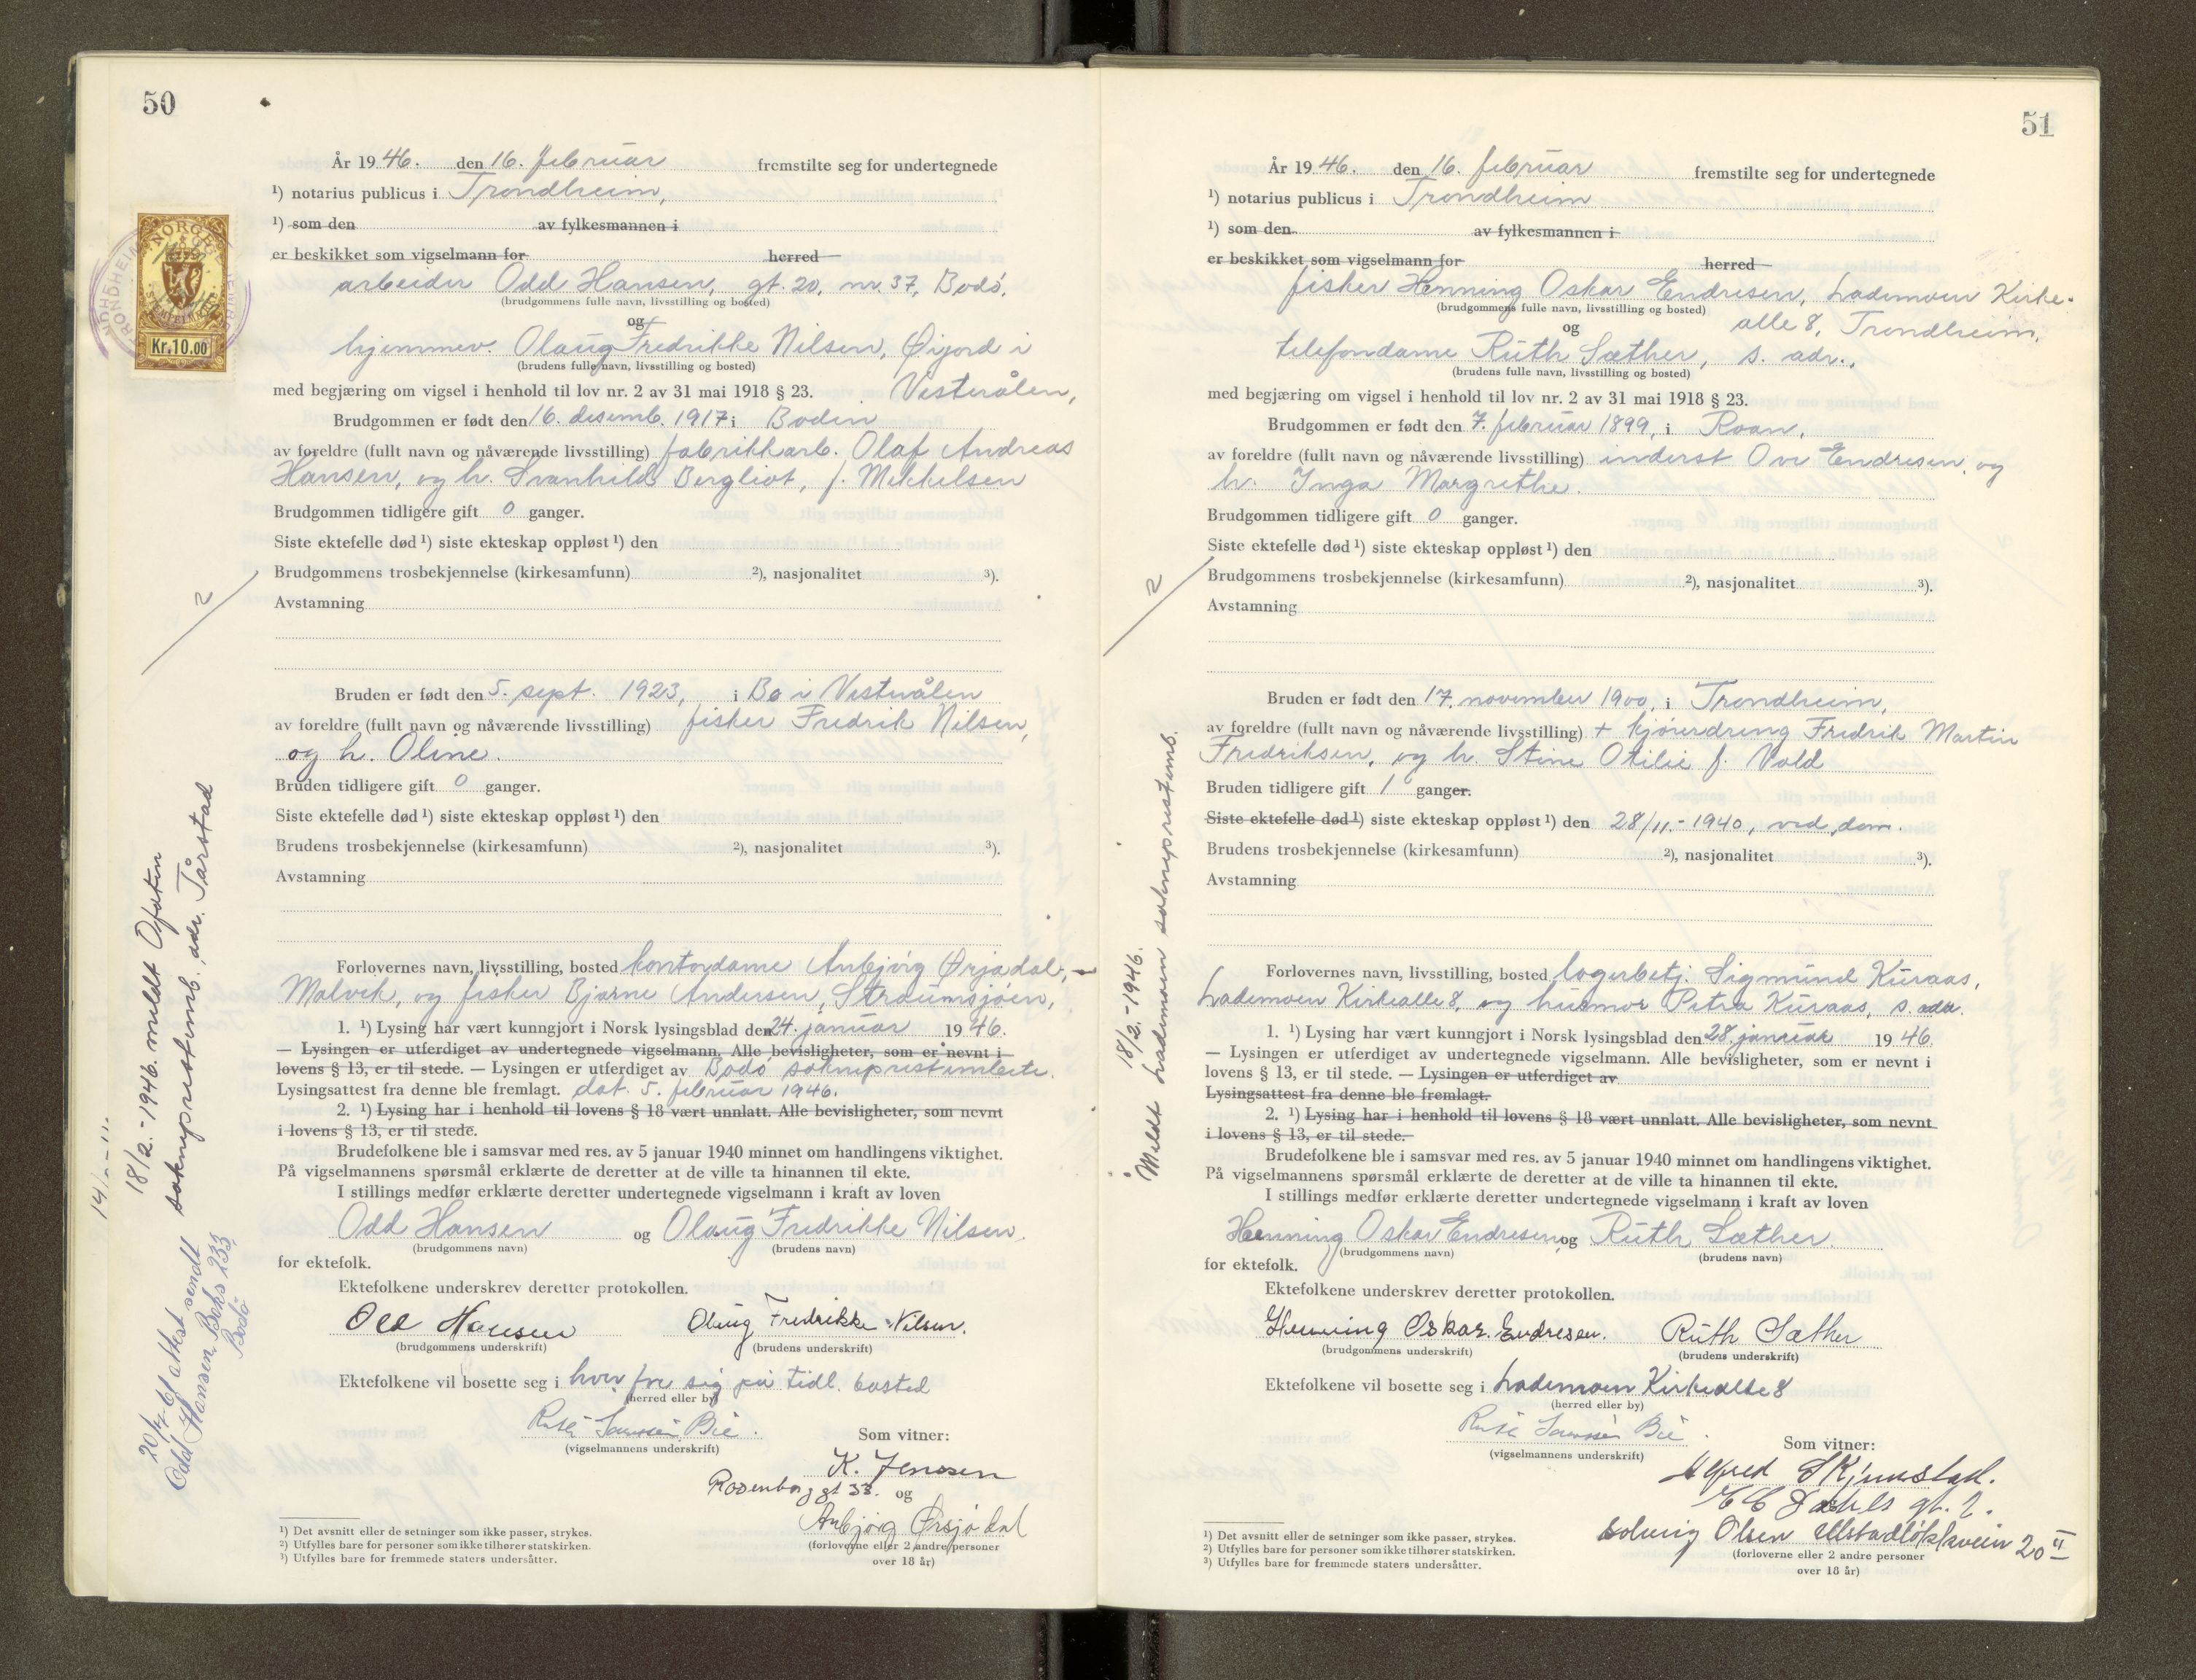 50
År 1946. den 16. februar fremstilte seg for undertegnede
¹) notarius publicus i Trondheim,
¹) som den av fylkesmannen i
er beskikket som vigselmann for herred
arbeider Odd Hansen, gt. 20, nr. 37, Bodö,
(brudgommens fulle navn, livsstilling og bosted)
og
hjemmev. Olaug Fredrikke Nilsen, Øijord i
(brudens fulle navn, livsstilling og bosted)
med begjæring om vigsel i henhold til lov nr. 2 av 31 mai 1918 § 23. Vesterålen,
Brudgommen er født den 16. desemb. 1917 i Bodin
av foreldre (fullt navn og nåværende livsstilling) fabrikkarb. Olaf Andreas
Hansen, og h. Svanhild Bergliot, f. Mikkelsen
Brudgommen tidligere gift 0 ganger.
Siste ektefelle død ¹) siste ekteskap oppløst ¹) den
Brudgommens trosbekjennelse (kirkesamfunn) ²), nasjonalitet ³).
Avstamning
Bruden er født den 5. sept. 1923, i Bø i Vesterålen
av foreldre (fullt navn og nåværende livsstilling) fisker Fredrik Nilsen,
og h. Oline.
Bruden tidligere gift 0 ganger.
Siste ektefelle død ¹) siste ekteskap oppløst ¹) den
Brudens trosbekjennelse (kirkesamfunn) ²), nasjonalitet ³).
Avstamning
Forlovernes navn, livsstilling, bosted kontordame Anbjörg Ørjadal, -
Malvik, og fisker Bjarne Andersen, Straumsjöen,
1. ¹) Lysing har vært kunngjort i Norsk lysingsblad den 24. januar 1946.
— Lysingen er utferdiget av undertegnede vigselmann. Alle bevisligheter, som er nevnt i
lovens § 13, er til stede. — Lysingen er utferdiget av Bodö sokneprestembete.
Lysingsattest fra denne ble fremlagt. dat. 5. februar 1946.
2. ¹) Lysing har i henhold til lovens § 18 vært unnlatt. Alle bevisligheter, som nevnt
i lovens § 13, er til stede.
Brudefolkene ble i samsvar med res. av 5 januar 1940 minnet om handlingens viktighet.
På vigselmannens spørsmål erklærte de deretter at de ville ta hinannen til ekte.
I stillings medfør erklærte deretter undertegnede vigselmann i kraft av loven
Odd Hansen og Olaug Fredrikke Nilsen.
(brudgommens navn) (brudens navn)
for ektefolk.
Ektefolkene underskrev deretter protokollen.
Odd Hansen Olaug Fredrikke Nilsen.
(brudgommens underskrift) (brudens underskrift)
Ektefolkene vil bosette seg i hver for sig på tidl. bosted
(herred eller by)
Ruth Bie.
(vigselmannens underskrift) Som vitner:
K. Jenssen
Rosenborg gt 33. og
Anbjörg Ørsjödal
(forloverne eller 2 andre personer
over 18 år)
¹) Det avsnitt eller de setninger som ikke passer, strykes.
²) Utfylles bare for personer som ikke tilhører statskirken.
³) Utfylles bare for fremmede staters undersåtter.
NORGE
Kr.10.00
2
18/2.-1946. meldt Ofoten
sokneprestemb., adr. Tårstad
20/4-61 attest sendt
Odd Hansen, Boks 233
Bodö
51
År 1946. den 16. februar fremstilte seg for undertegnede
¹) notarius publicus i Trondheim
¹) som den av fylkesmannen i
er beskikket som vigselmann for herred
fisker Henning Oskar Endresen, Lademoen Kirke-
(brudgommens fulle navn, livsstilling og bosted)
og alle 8, Trondheim,
telefondame Ruth Sæther, s. adr.,
(brudens fulle navn, livsstilling og bosted)
med begjæring om vigsel i henhold til lov nr. 2 av 31 mai 1918 § 23.
Brudgommen er født den 7. februar 1899, i Roan,
av foreldre (fullt navn og nåværende livsstilling) inderst Ove Endresen, og
h. Inga Margrethe.
Brudgommen tidligere gift 0 ganger.
Siste ektefelle død ¹) siste ekteskap oppløst ¹) den
Brudgommens trosbekjennelse (kirkesamfunn) ²), nasjonalitet ³).
Avstamning
Bruden er født den 17. november 1900, i Trondheim,
av foreldre (fullt navn og nåværende livsstilling) + kjöredreng Fredrik Martin
Fredriksen, og h. Stine Otilie f. Vold
Bruden tidligere gift 1 ganger.
Siste ektefelle død ¹) siste ekteskap oppløst ¹) den 28/11.-1940, ved dom.
Brudens trosbekjennelse (kirkesamfunn) ²), nasjonalitet ³).
Avstamning
Forlovernes navn, livsstilling, bosted lagerbetj. Sigmund Kuraas,
Lademoen Kirkealle 8, og husmor Petra Kuraas, s. adr.
1. ¹) Lysing har vært kunngjort i Norsk lysingsblad den 28. januar 1946.
— Lysingen er utferdiget av undertegnede vigselmann. Alle bevisligheter, som er nevnt i
lovens § 13, er til stede. — Lysingen er utferdiget av
Lysingsattest fra denne ble fremlagt.
2. ¹) Lysing har i henhold til lovens § 18 vært unnlatt. Alle bevisligheter, som nevnt
i lovens § 13, er til stede.
Brudefolkene ble i samsvar med res. av 5 januar 1940 minnet om handlingens viktighet.
På vigselmannens spørsmål erklærte de deretter at de ville ta hinannen til ekte.
I stillings medfør erklærte deretter undertegnede vigselmann i kraft av loven
Henning Oskar Endresen og Ruth Sæther.
(brudgommens navn) (brudens navn)
for ektefolk.
Ektefolkene underskrev deretter protokollen.
Henning Oskar. Endresen. Ruth Sæther
(brudgommens underskrift) (brudens underskrift)
Ektefolkene vil bosette seg i Lademoen Kirkealle 8
(herred eller by)
Ruth Bie.
(vigselmannens underskrift) Som vitner:
Alfred Skjmstad.
E C Dahls gt. 2.
Solveig Olsen 20 II
(forloverne eller 2 andre personer
over 18 år)
¹) Det avsnitt eller de setninger som ikke passer, strykes.
²) Utfylles bare for personer som ikke tilhører statskirken.
³) Utfylles bare for fremmede staters undersåtter.
2
18/2.-1946.
Meldt Lademoen sokneprestemb.